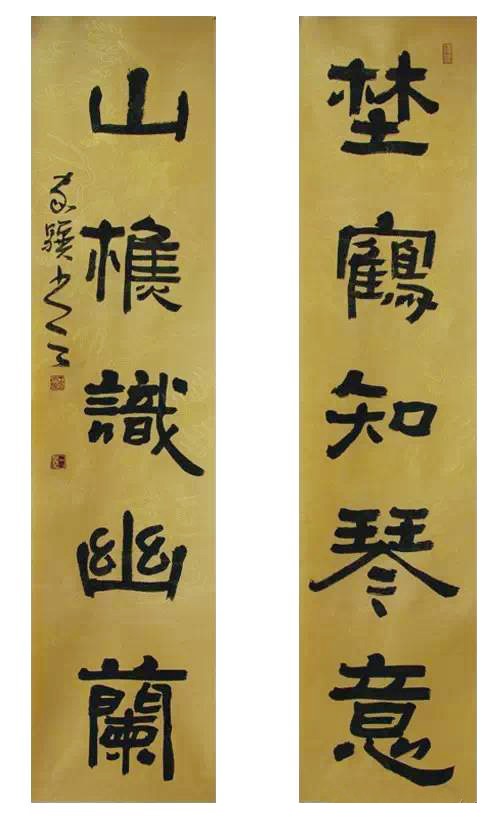 埜鶴知琴意
山樵識幽蘭